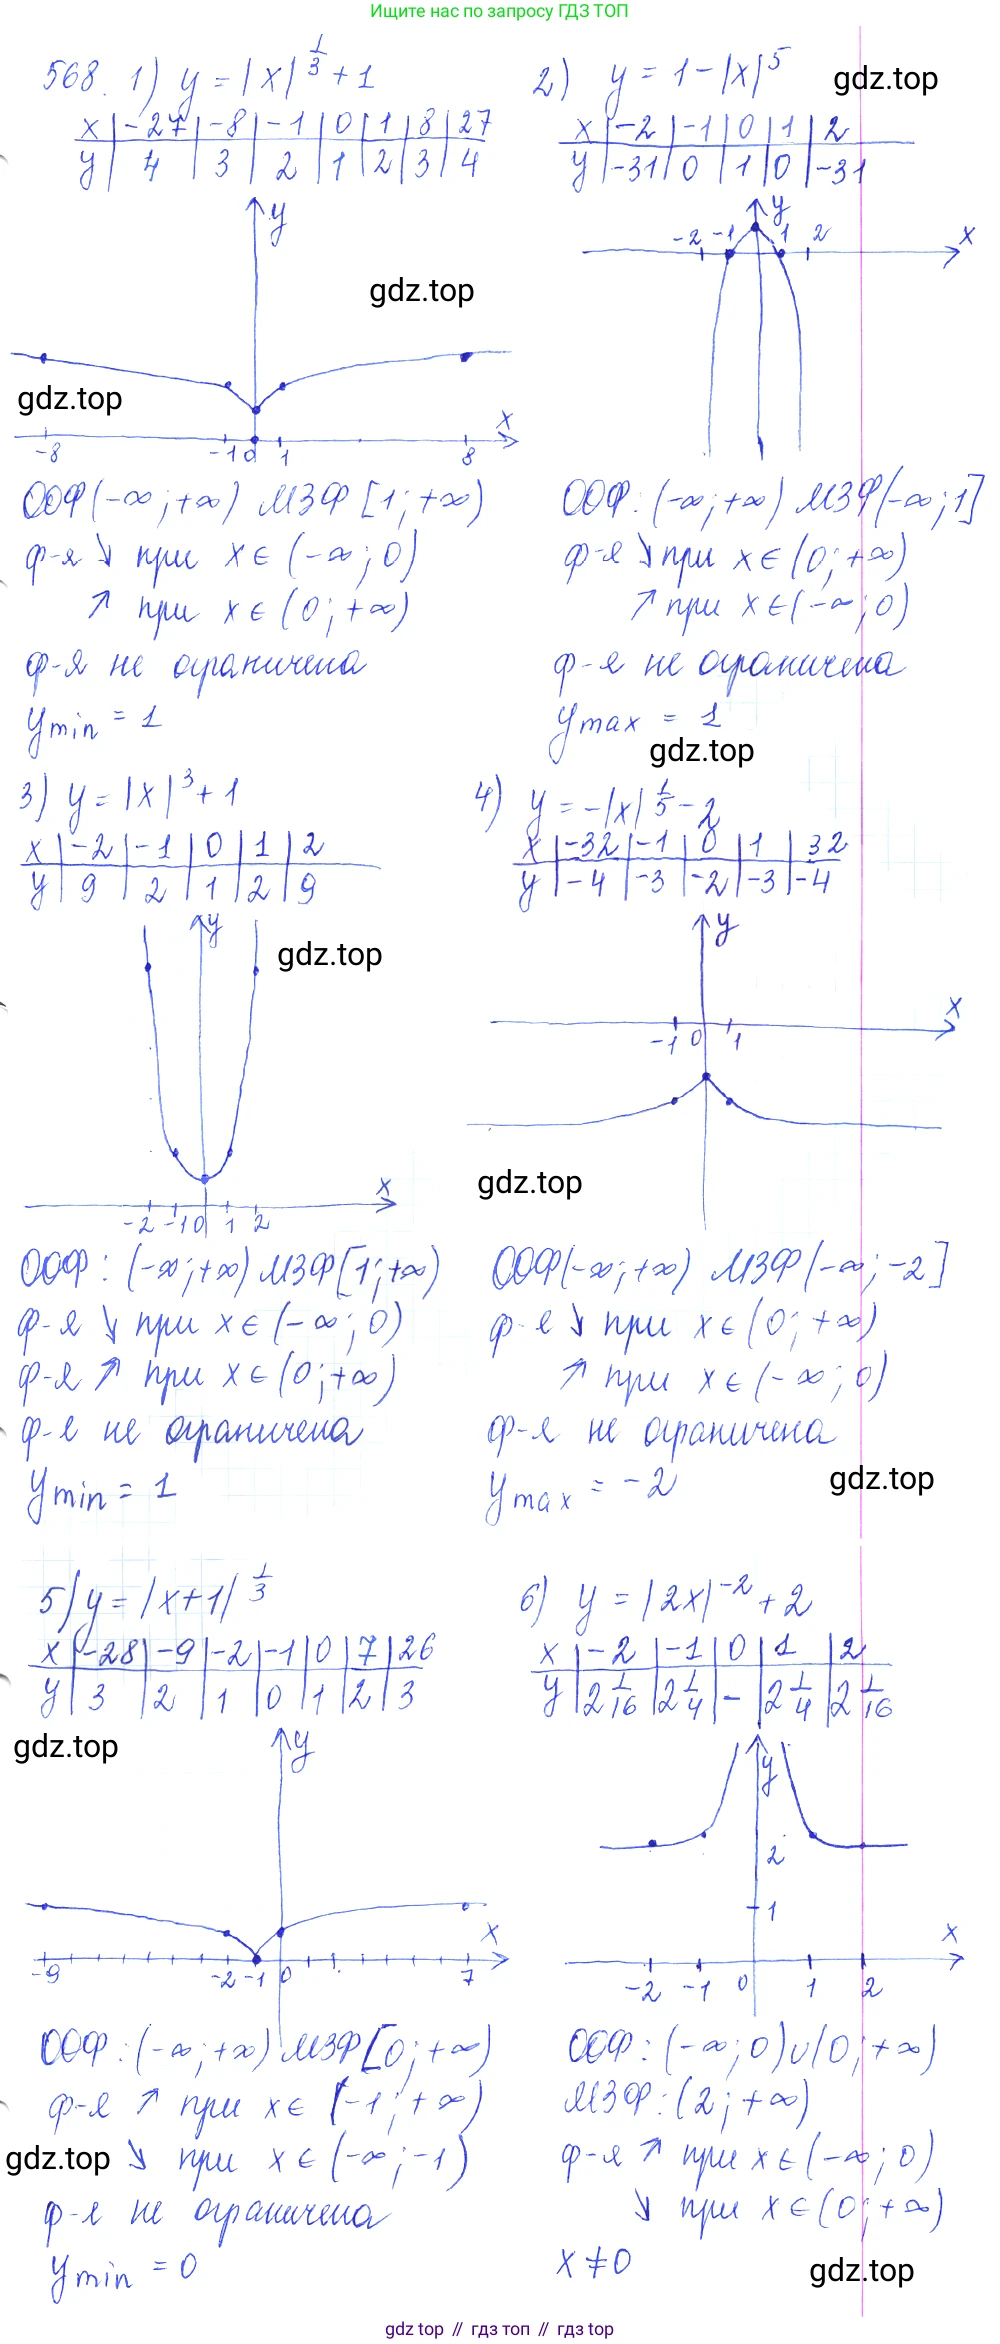 Ищите нас по запросу ГДЗ ТОП
568. 1) y = |x|^(1/3) + 1
x | -27 | -8 | -1 | 0 | 1 | 8 | 27
y | 4 | 3 | 2 | 1 | 2 | 3 | 4
y
gdz.top
gdz.top
x
-8 -1 0 1 8
ООФ (-∞; +∞) МЗФ [1; +∞)
ф-я ↘ при x ∈ (-∞; 0)
↗ при x ∈ (0; +∞)
ф-я не ограничена
y min = 1
2) y = 1 - |x|^5
gdz.top
x | -2 | -1 | 0 | 1 | 2
y | -31 | 0 | 1 | 0 | -31
y
-2 -1 1 2 x
ООФ: (-∞; +∞) МЗФ (-∞; 1]
ф-я ↘ при x ∈ (0; +∞)
↗ при x ∈ (-∞; 0)
ф-я не ограничена
y max = 1
gdz.top
3) y = |x|^3 + 1
x | -2 | -1 | 0 | 1 | 2
y | 9 | 2 | 1 | 2 | 9
y
gdz.top
x
-2 -1 0 1 2
ООФ: (-∞; +∞) МЗФ [1; +∞)
ф-я ↘ при x ∈ (-∞; 0)
ф-я ↗ при x ∈ (0; +∞)
ф-я не ограничена
y min = 1
4) y = -|x|^(1/5) - 2
x | -32 | -1 | 0 | 1 | 32
y | -4 | -3 | -2 | -3 | -4
y
x
-1 0 1
gdz.top
ООФ (-∞; +∞) МЗФ (-∞; -2]
ф-я ↘ при x ∈ (0; +∞)
↗ при x ∈ (-∞; 0)
ф-я не ограничена
y max = -2
gdz.top
5) y = |x+1|^(1/3)
x | -28 | -9 | -2 | -1 | 0 | 7 | 26
y | 3 | 2 | 1 | 0 | 1 | 2 | 3
gdz.top
y
x
-9 -2 -1 0 7
ООФ: (-∞; +∞) МЗФ [0; +∞)
ф-я ↗ при x ∈ (-1; +∞)
gdz.top
↘ при x ∈ (-∞; -1)
ф-я не ограничена
y min = 0
6) y = |2x|^-2 + 2
x | -2 | -1 | 0 | 1 | 2
y | 2 1/16 | 2 1/4 | - | 2 1/4 | 2 1/16
y
2
1
x
-2 -1 0 1 2
ООФ: (-∞; 0) ∪ (0; +∞)
МЗФ: (2; +∞)
ф-я ↗ при x ∈ (-∞; 0)
↘ при x ∈ (0; +∞)
x ≠ 0
gdz.top
gdz.top // гдз топ // гдз.top